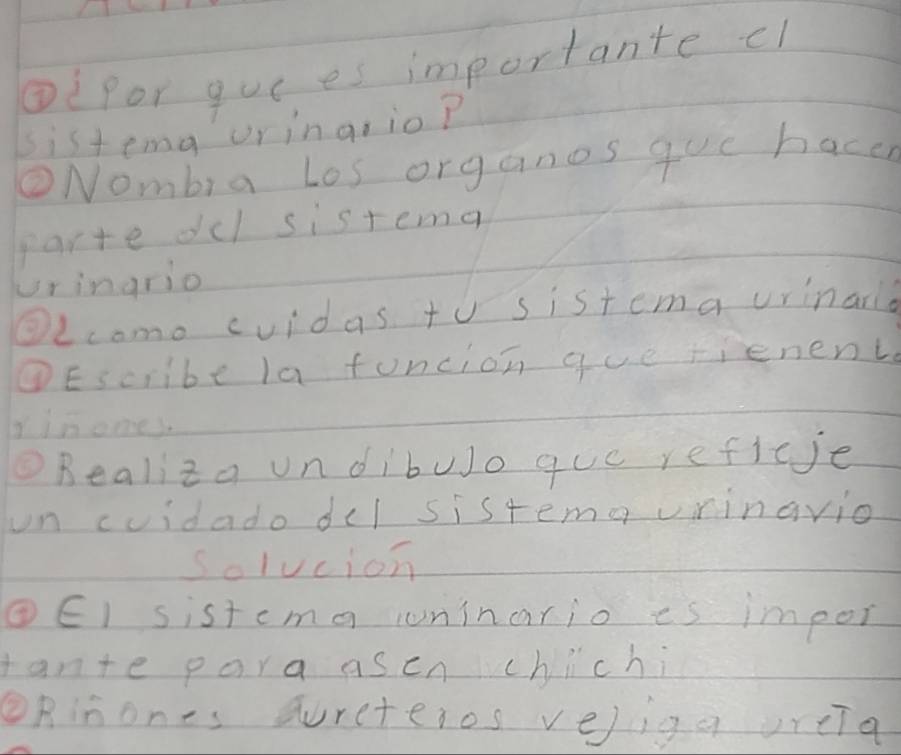 ① ¿Por que es importante el
sistema urinario?
② Nombra Los organos que hacen
parte del sistema
urinario
③ ¿como cuidas tu sistema urinario
④ Escribe la funcion que tienen
riñones.
⑤ Realiza un dibulo que refleje
un cuidado del sistema urinario
Solucion
① El sistema uninario es impor
tante para asen chichi
② Riñones ureteros vejiga ureta